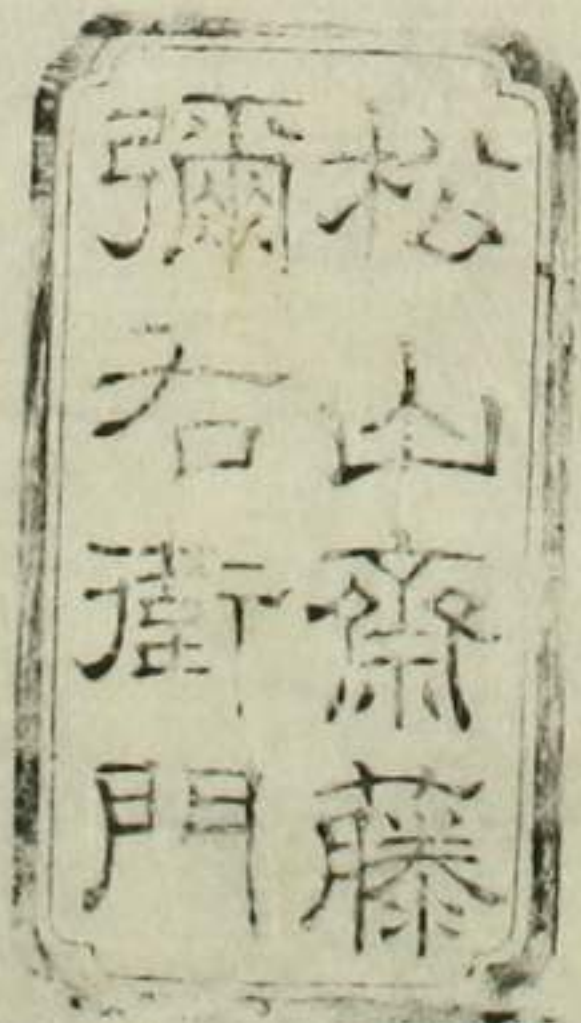 松山齋藤
彌右衛門